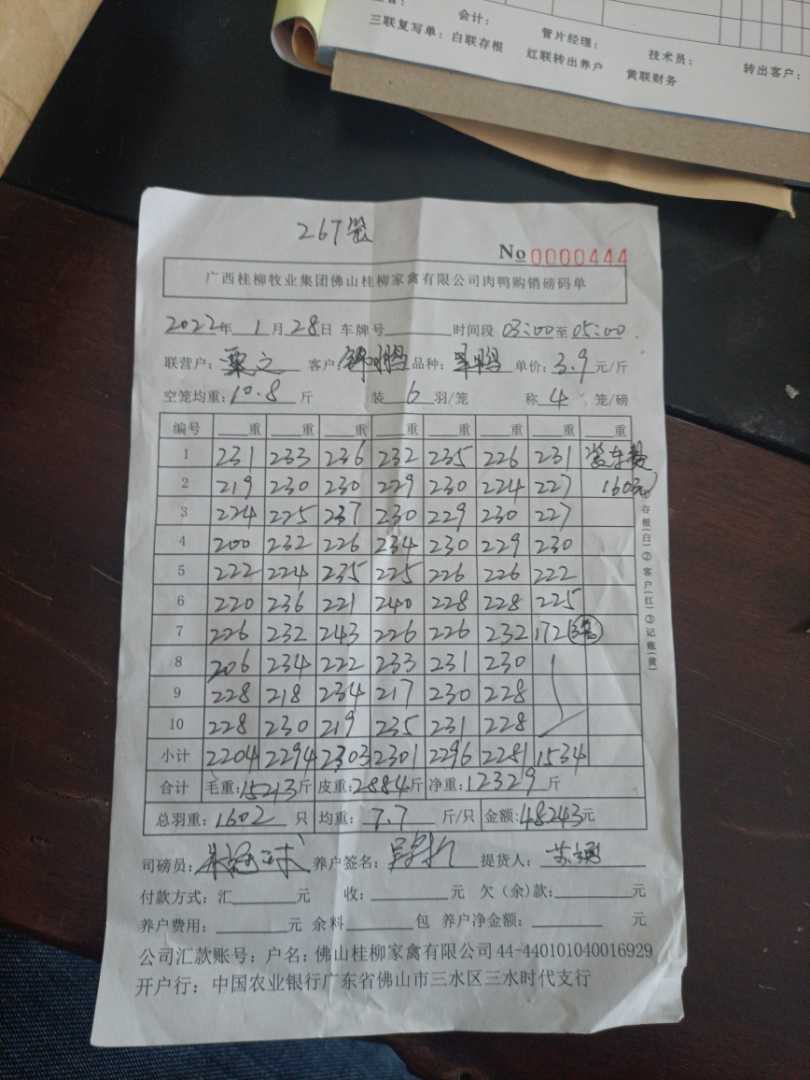 会计：
管片经理：
技术员：
转出客户：
三联复写单：白联存根
红联转出养户
黄联财务
267笼
No 0000444
广西桂柳牧业集团佛山桂柳家禽有限公司肉鸭购销磅码单
2022年 1月28日 车牌号 时间段 03:00至05:00
联营户： 客户： 品种： 单价：3.9元/斤
空笼均重：10.8斤 装 6 羽/笼 称 4 笼/磅
编号 重 重 重 重 重 重 重 重
1 231 233 236 232 235 226 231 装车费
2 219 230 230 229 230 224 227 160元
3 224 225 237 230 229 230 227
4 200 232 226 234 230 229 230
5 222 224 235 225 226 226 222
6 220 236 221 240 228 228 225
7 226 232 243 226 226 232 172 3笼
8 206 234 222 233 231 230
9 228 218 234 217 230 228
10 228 230 219 235 231 228
小计 2204 2294 2303 2301 2296 2281 1534
合计 毛重：15213斤 皮重：2884斤 净重：12329斤
总羽重：1602只 均重：7.7斤/只 金额：48243元
存根(白)②客户(红)③记账(黄)
司磅员： 养户签名： 提货人：
付款方式：汇 元 收： 元 欠（余）款： 元
养户费用： 元 余料 包 养户净金额： 元
公司汇款账号：户名：佛山桂柳家禽有限公司44-440101040016929
开户行：中国农业银行广东省佛山市三水区三水时代支行